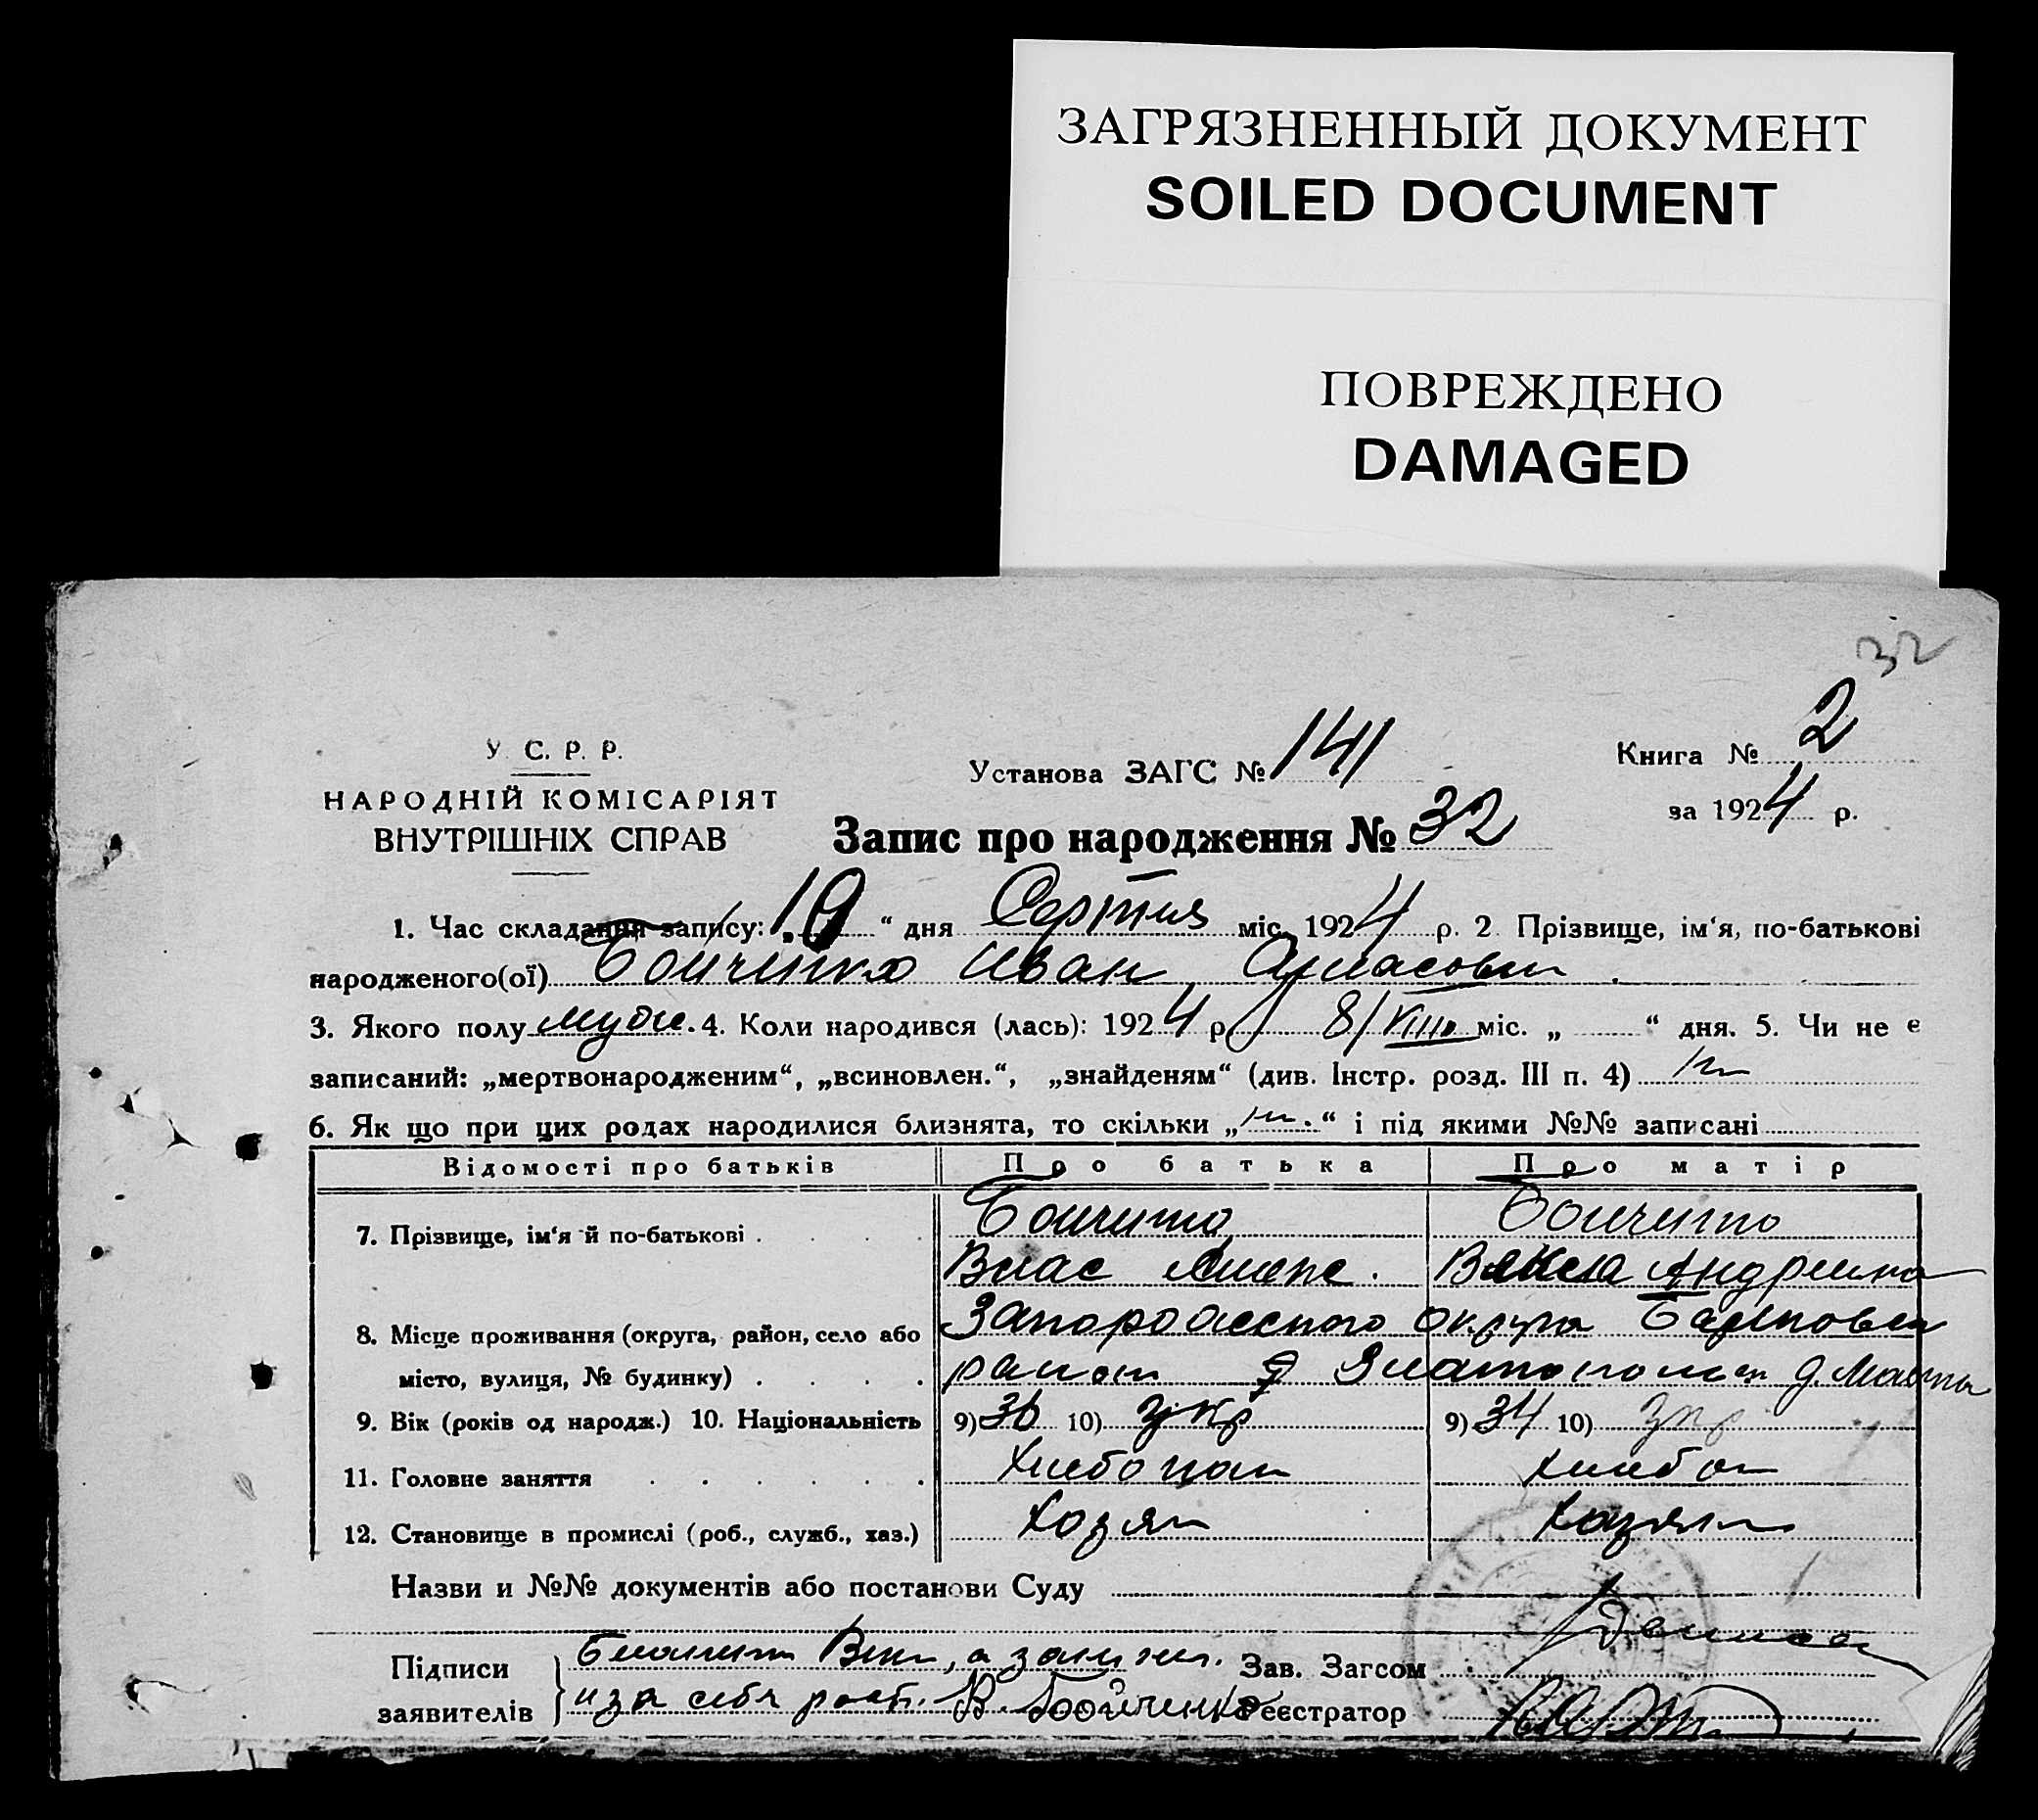 ЗАГРЯЗНЕННЫЙ ДОКУМЕНТ
SOILED DOCUMENT
ПОВРЕЖДЕНО
DAMAGED
32
У. С. Р. Р.
НАРОДНІЙ КОМІСАРІЯТ
ВНУТРІШНІХ СПРАВ
Установа ЗАГС № 141
Книга № 2
за 1924 р.
Запис про народження № 32
1. Час складання запису: „ 19 “ дня міс. 1924 р. 2 Прізвище, ім‘я, по-батькові
народженого(ої) Бойченко Иван
3. Якого полу муж. 4. Коли народився (лась): 1924 р. 8/VIII міс. „ “ дня. 5. Чи не є
записаний: „мертвонародженим“, „всиновлен.“, „знайденям“ (див. Інстр. розд. III п. 4)
6. Як що при цих родах народилися близнята, то скільки „ “ і під якими №№ записані
Відомості про батьків Про батька Про матір
7. Прізвище, ім‘я й по-батькові Бойченко Бойченко
Влас
8. Місце проживання (округа, район, село або Запорожского округа
місто, вулиця, № будинку) район
9. Вік (років од народж.) 10. Національність 9) 36 10) Укр 9) 34 10) Укр
11. Головне заняття Хлебопаш Хлебоп
12. Становище в промислі (роб., служб., хаз.) Хозяин Хозяин
Назви и №№ документів або постанови Суду
Підписи
заявителів и за себя расп. В. Бойченко
Зав. Загсом
Реєстратор